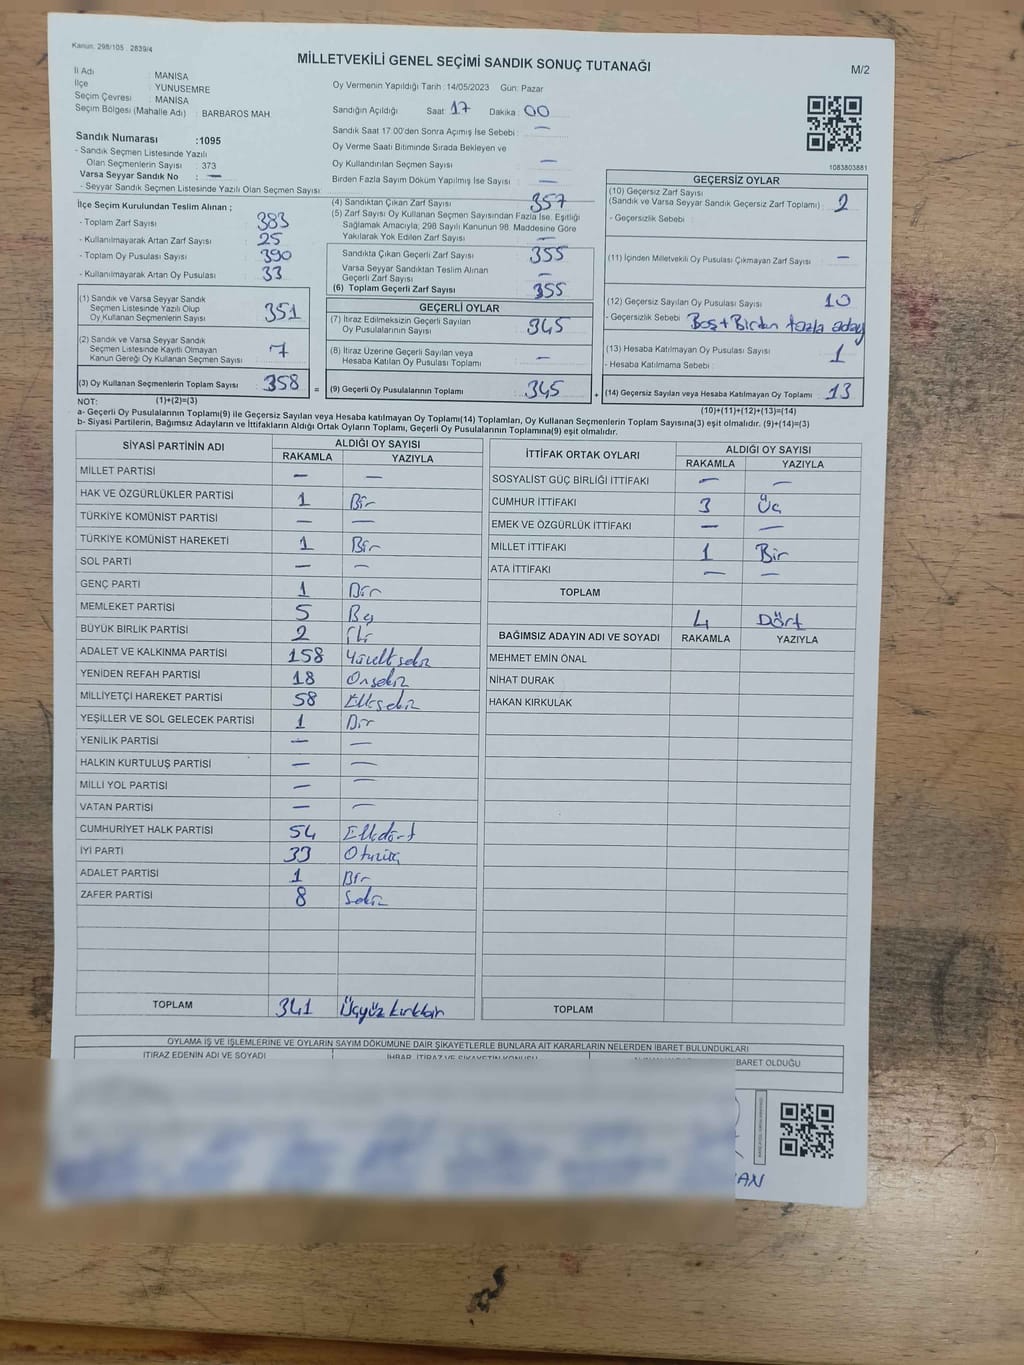 Kanun: 298/105 . 2839/4
MİLLETVEKİLİ GENEL SEÇİMİ SANDIK SONUÇ TUTANAĞI
M/2
İl Adı : MANISA
İlçe : YUNUSEMRE
Seçim Çevresi : MANİSA
Seçim Bölgesi (Mahalle Adı) : BARBAROS MAH.
Oy Vermenin Yapıldığı Tarih : 14/05/2023 Gün: Pazar
Sandığın Açıldığı Saat : 17 Dakika : 00
Sandık Saat 17:00'den Sonra Açımış İse Sebebi : —
Oy Verme Saati Bitiminde Sırada Bekleyen ve
Oy Kullandırılan Seçmen Sayısı : —
Birden Fazla Sayım Döküm Yapılmış İse Sayısı : —
1083803881
Sandık Numarası :1095
- Sandık Seçmen Listesinde Yazılı
Olan Seçmenlerin Sayısı : 373
Varsa Seyyar Sandık No : —
- Seyyar Sandık Seçmen Listesinde Yazılı Olan Seçmen Sayısı :
İlçe Seçim Kurulundan Teslim Alınan ;
- Toplam Zarf Sayısı : 383
- Kullanılmayarak Artan Zarf Sayısı : 25
- Toplam Oy Pusulası Sayısı : 390
- Kullanılmayarak Artan Oy Pusulası : 33
(1) Sandık ve Varsa Seyyar Sandık
Seçmen Listesinde Yazılı Olup
Oy Kullanan Seçmenlerin Sayısı : 351
(2) Sandık ve Varsa Seyyar Sandık
Seçmen Listesinde Kayıtlı Olmayan
Kanun Gereği Oy Kullanan Seçmen Sayısı : 7
(3) Oy Kullanan Seçmenlerin Toplam Sayısı : 358 =
(4) Sandıktan Çıkan Zarf Sayısı : 357
(5) Zarf Sayısı Oy Kullanan Seçmen Sayısından Fazla İse, Eşitliği
Sağlamak Amacıyla; 298 Sayılı Kanunun 98. Maddesine Göre
Yakılarak Yok Edilen Zarf Sayısı : —
Sandıkta Çıkan Geçerli Zarf Sayısı : 355
Varsa Seyyar Sandıktan Teslim Alınan
Geçerli Zarf Sayısı : —
(6) Toplam Geçerli Zarf Sayısı : 355
GEÇERLİ OYLAR
(7) İtiraz Edilmeksizin Geçerli Sayılan
Oy Pusulalarının Sayısı : 345
(8) İtiraz Üzerine Geçerli Sayılan veya
Hesaba Katılan Oy Pusulası Toplamı : —
(9) Geçerli Oy Pusulalarının Toplamı : 345 +
GEÇERSİZ OYLAR
(10) Geçersiz Zarf Sayısı
(Sandık ve Varsa Seyyar Sandık Geçersiz Zarf Toplamı) : 2
- Geçersizlik Sebebi :
(11) İçinden Milletvekili Oy Pusulası Çıkmayan Zarf Sayısı : —
(12) Geçersiz Sayılan Oy Pusulası Sayısı : 10
- Geçersizlik Sebebi : Boş + Birden fazla aday
(13) Hesaba Katılmayan Oy Pusulası Sayısı : 1
- Hesaba Katılmama Sebebi :
(14) Geçersiz Sayılan veya Hesaba Katılmayan Oy Toplamı : 13
NOT: (1)+(2)=(3)
(10)+(11)+(12)+(13)=(14)
a- Geçerli Oy Pusulalarının Toplamı(9) ile Geçersiz Sayılan veya Hesaba katılmayan Oy Toplamı(14) Toplamları, Oy Kullanan Seçmenlerin Toplam Sayısına(3) eşit olmalıdır. (9)+(14)=(3)
b- Siyasi Partilerin, Bağımsız Adayların ve İttifakların Aldığı Ortak Oyların Toplamı, Geçerli Oy Pusulalarının Toplamına(9) eşit olmalıdır.
SİYASİ PARTİNİN ADI ALDIĞI OY SAYISI
RAKAMLA YAZIYLA
MİLLET PARTİSİ — —
HAK VE ÖZGÜRLÜKLER PARTİSİ 1 Bir
TÜRKİYE KOMÜNİST PARTİSİ — —
TÜRKİYE KOMÜNİST HAREKETİ 1 Bir
SOL PARTİ — —
GENÇ PARTİ 1 Bir
MEMLEKET PARTİSİ 5 Beş
BÜYÜK BİRLİK PARTİSİ 2 İki
ADALET VE KALKINMA PARTİSİ 158 Yüzellisekiz
YENİDEN REFAH PARTİSİ 18 Onsekiz
MİLLİYETÇİ HAREKET PARTİSİ 58 Ellisekiz
YEŞİLLER VE SOL GELECEK PARTİSİ 1 Bir
YENİLİK PARTİSİ — —
HALKIN KURTULUŞ PARTİSİ — —
MİLLİ YOL PARTİSİ — —
VATAN PARTİSİ — —
CUMHURİYET HALK PARTİSİ 54 Ellidört
İYİ PARTİ 33 Otuzüç
ADALET PARTİSİ 1 Bir
ZAFER PARTİSİ 8 Sekiz
TOPLAM 341 Üçyüz kırkbir
İTTİFAK ORTAK OYLARI ALDIĞI OY SAYISI
RAKAMLA YAZIYLA
SOSYALİST GÜÇ BİRLİĞİ İTTİFAKI — —
CUMHUR İTTİFAKI 3 Üç
EMEK VE ÖZGÜRLÜK İTTİFAKI — —
MİLLET İTTİFAKI 1 Bir
ATA İTTİFAKI — —
TOPLAM
4 Dört
BAĞIMSIZ ADAYIN ADI VE SOYADI RAKAMLA YAZIYLA
MEHMET EMİN ÖNAL
NİHAT DURAK
HAKAN KIRKULAK
TOPLAM
OYLAMA İŞ VE İŞLEMLERİNE VE OYLARIN SAYIM DÖKÜMÜNE DAİR ŞİKAYETLERLE BUNLARA AİT KARARLARIN NELERDEN İBARET BULUNDUKLARI
İTİRAZ EDENİN ADI VE SOYADI İHBAR, İTİRAZ VE ŞİKAYETİN KONUSU BARET OLDUĞU
AN